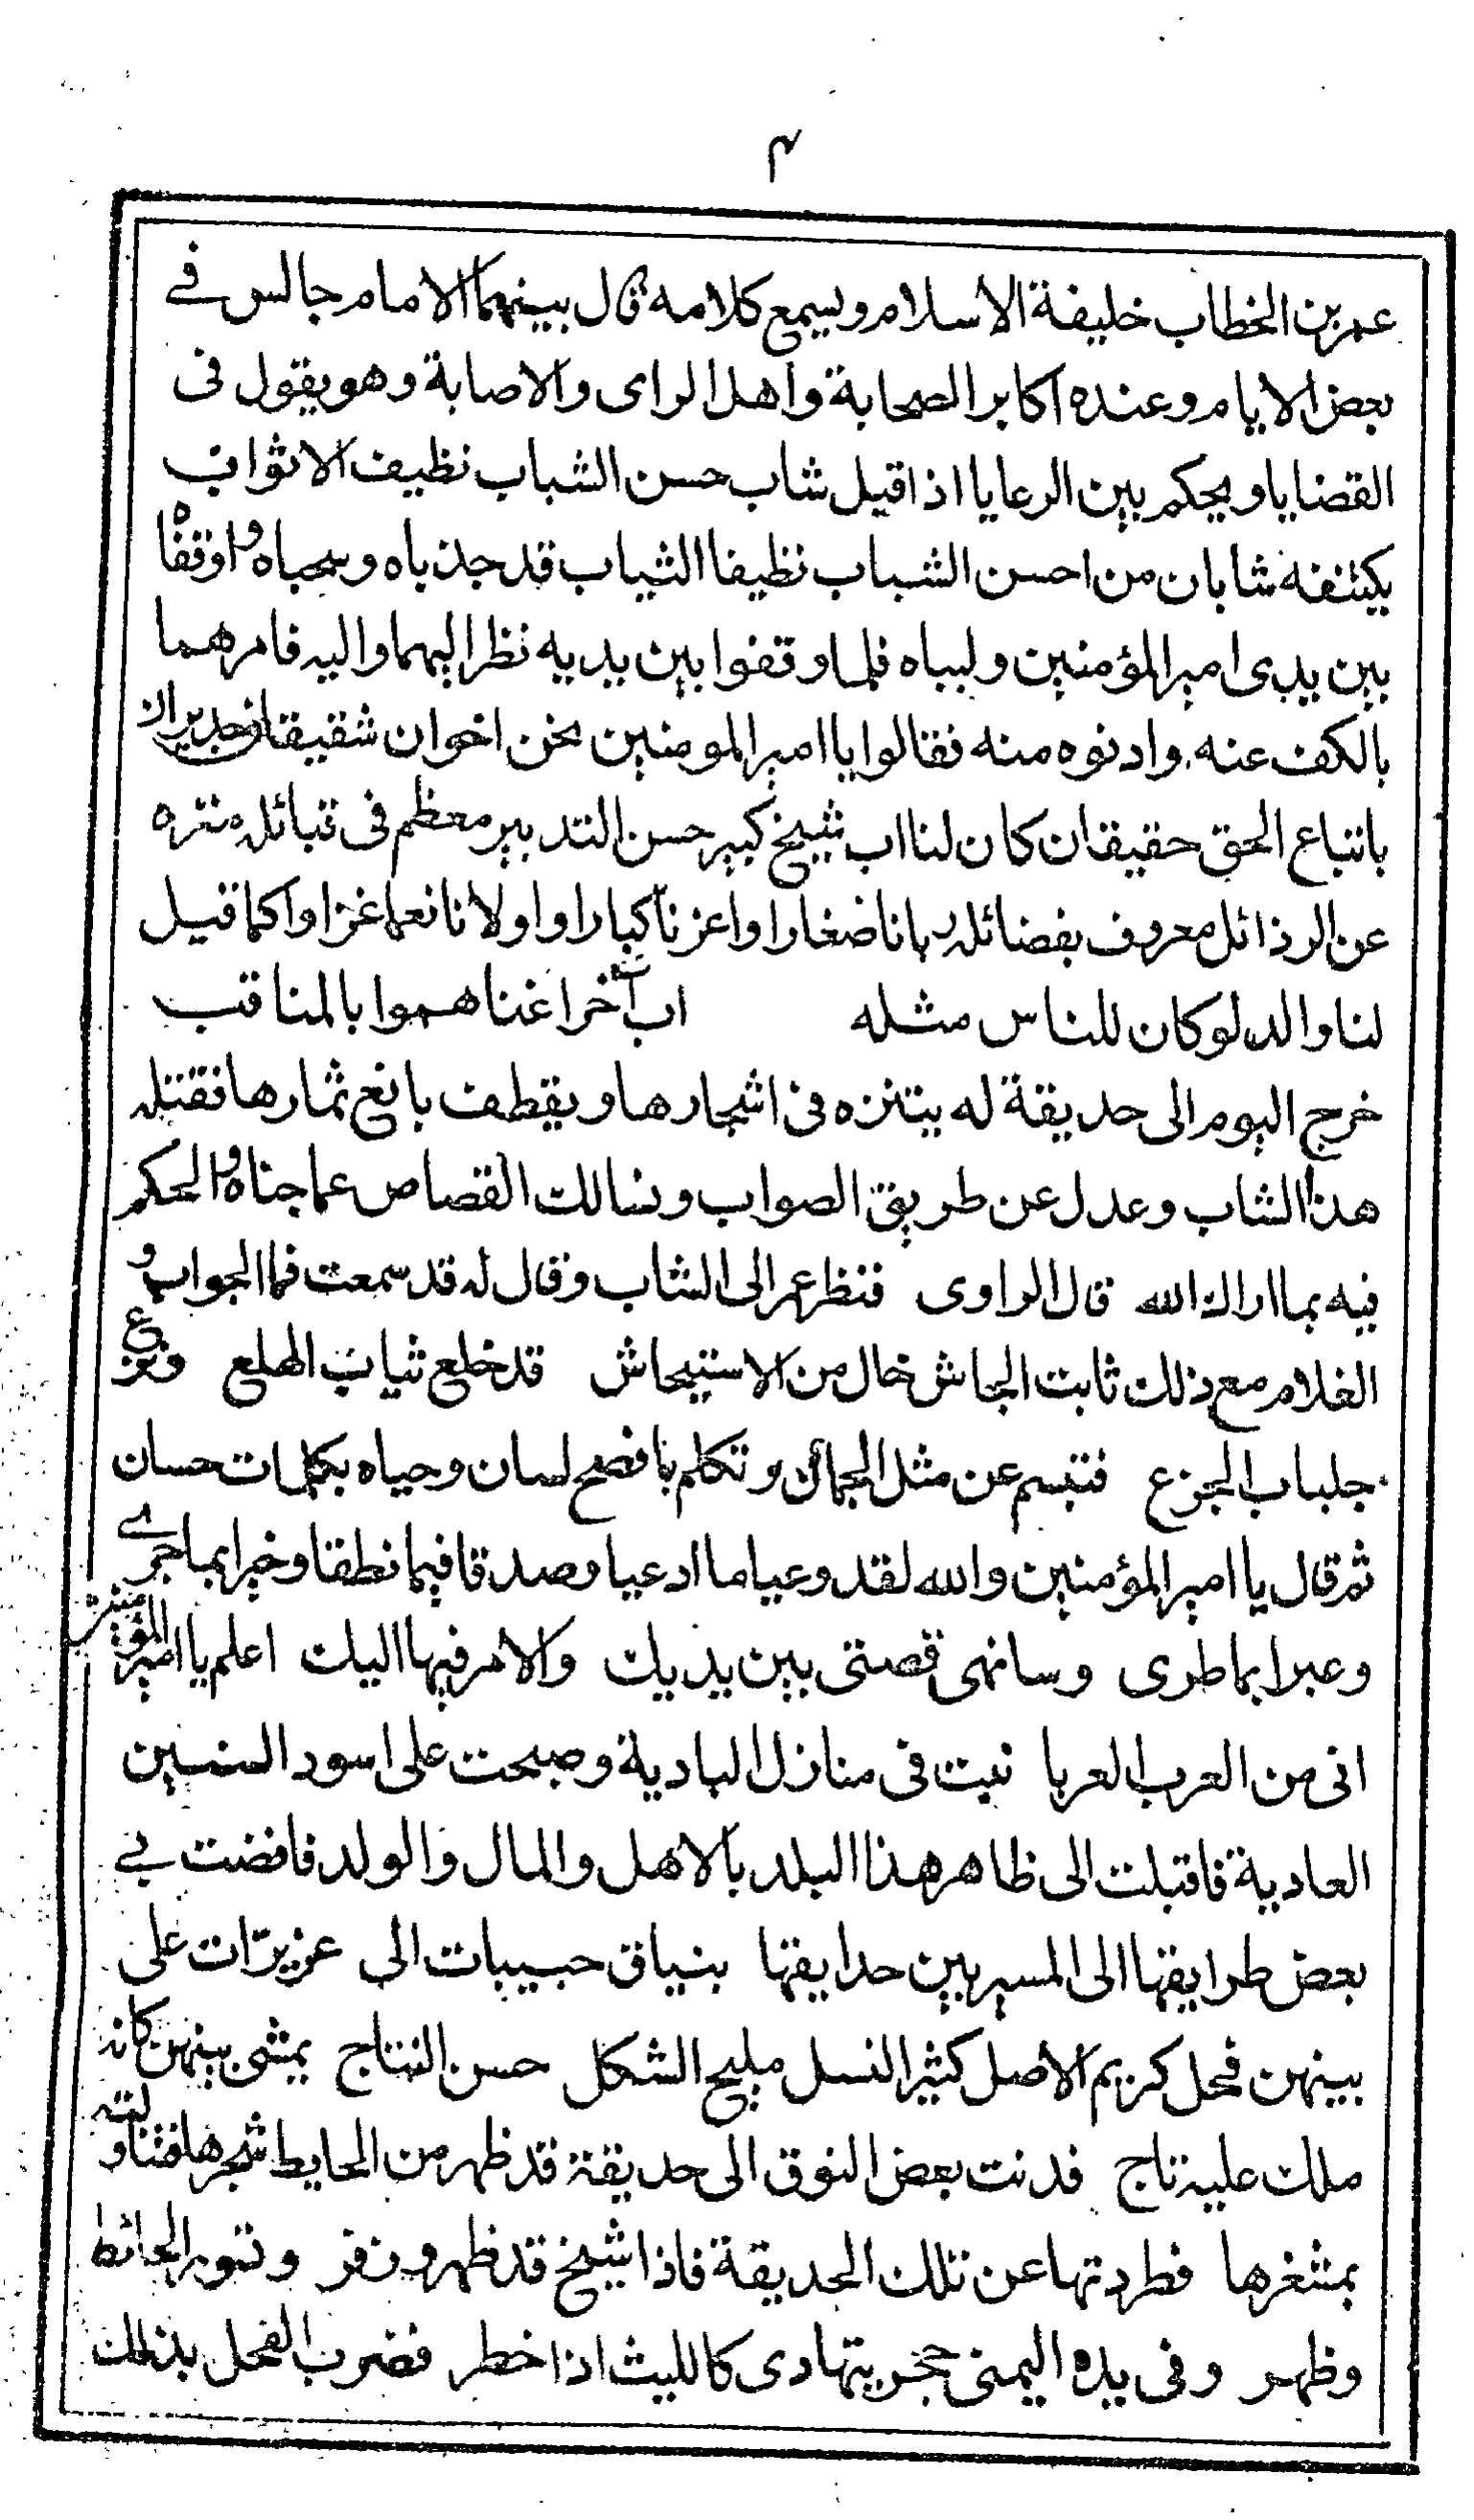 ٣
عمر بن الخطاب خليفة الاسلام ويسمع كلامه قال بينهما الامام جالس في
بعض الايام وعنده اكابر الصحابة واهل الراى والاصابة وهو يقول فى
القضايا ويحكم بين الرعايا اذ اقبل شاب حسن الشباب نظيف الاثواب
يكتنفه شابان من احسن الشباب نظيفا الثياب قد جذباه وسحباه واوقفاه
بين يدى امير المؤمنين ولبباه فلما وقفوا بين يديه نظر اليهما واليه فامرهما
بالكف عنه وادنوه منه فقالوا يا امير المومنين نحن اخوان شقيقان جديران
باتباع الحق حقيقان كان لنا اب شيخ كبير حسن التدبير معظم فى قبائله منزه
عن الرذائل معروف بفضائله ربانا صغارا واعزنا كبارا واولانا نعما غزارا كما قيل
لنا والد لو كان للناس مثله اب اخر اغناهموا بالمناقب
خرج اليوم الى حديقة له يتنزه فى اشجارها ويقطف يانع ثمارها فقتله
هذا الشاب وعدل عن طريق الصواب ونسالك القصاص عما جناه والحكم
فيه بما اراك الله قال الراوى فنظر عمر الى الشاب وقال له قد سمعت فما الجواب و
الغلام مع ذلك ثابت الجاش خال من الاستيحاش قد خلع ثياب الهلع ونزع
جلباب الجزع فتبسم عن مثل الجمان وتكلم بافصح لسان وحياه بكلمات حسان
ثم قال يا امير المؤمنين والله لقد وعيا ما ادعيا وصدقا فيما نطقا وخبرا بما جرے
وعبرا بما طرى وسانهى قصتى بين يديك والامر فيها اليك اعلم يا امير المؤمنين
انى من العرب العربا نبت فى منازل البادية وصبحت على اسود السنين
العادية فاقبلت الى ظاهر هذا البلد بالاهل والمال والولد فافضت بے
بعض طرايقها الى المسير بين حدايقها بنياق حبيبات الي عزيزات على
بينهن فحل كريم الاصل كثير النسل مليح الشكل حسن النتاج يمشى بينهن كانه
ملك عليه تاج فدنت بعض النوق الى حديقة قد ظهر من الحايط شجرها فتناولته
بمشغرها فطردتها عن تلك الحديقة فاذا شيخ قد ظهر وزفر وتسور الحائط
وظهر وفى يده اليمنى حجر يتهادى كالليث اذا خطر فضرب الفحل بذلك